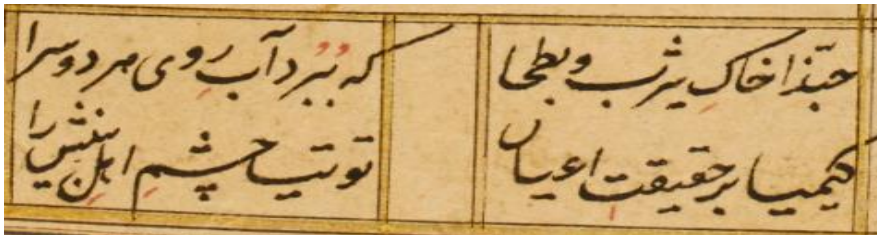 حبّذا خاکِ یثرب و بطحا
که بُبُرد آبِ روی هر دو سرا
کیمیا بر حقیقتِ اعیان
توتیا چشمِ اهلِ بینش را